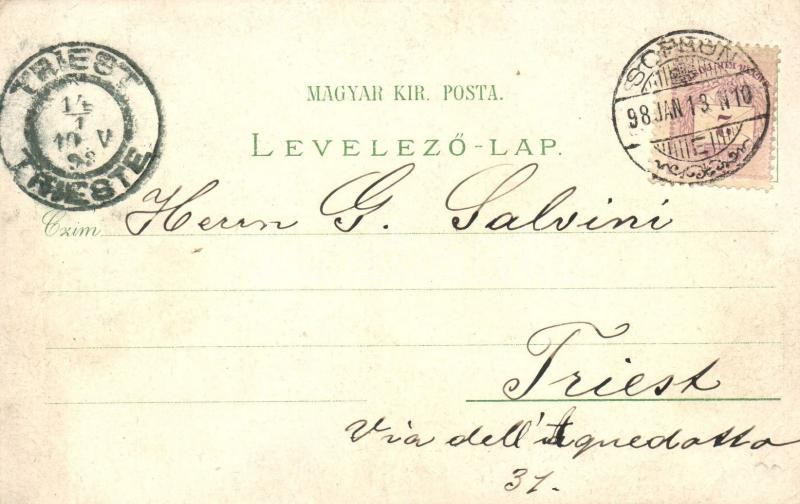 TRIEST
14/1
10 V
98
TRIESTE
SOPRON
98 JAN 13 N 10
MAGYAR KIR. POSTA.
LEVELEZŐ-LAP.
Czim Herrn G. Salvini
Triest
Via dell'Aquedotto
31.